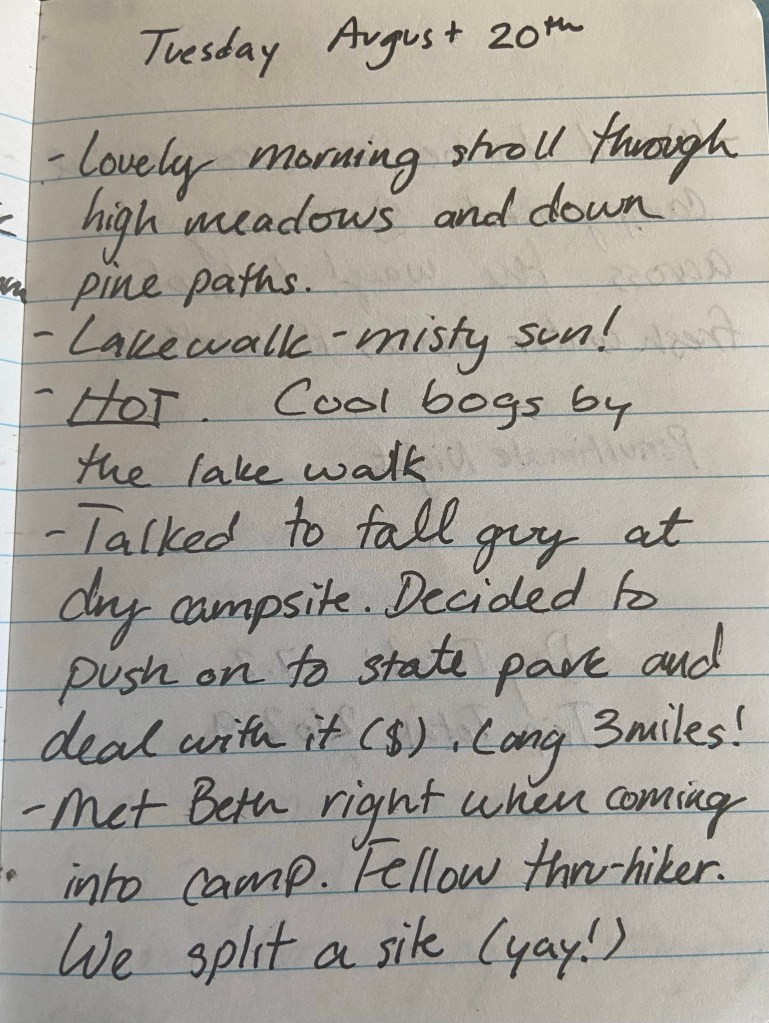 Tuesday August 20th
- Lovely morning stroll through
high meadows and down
pine paths.
- Lakewalk - misty sun!
- HOT. Cool bogs by
the lake walk
- Talked to tall guy at
dry campsite. Decided to
push on to state park and
deal with it ($). Long 3 miles!
- Met Beth right when coming
into camp. Fellow thru-hiker.
We split a site (yay!)